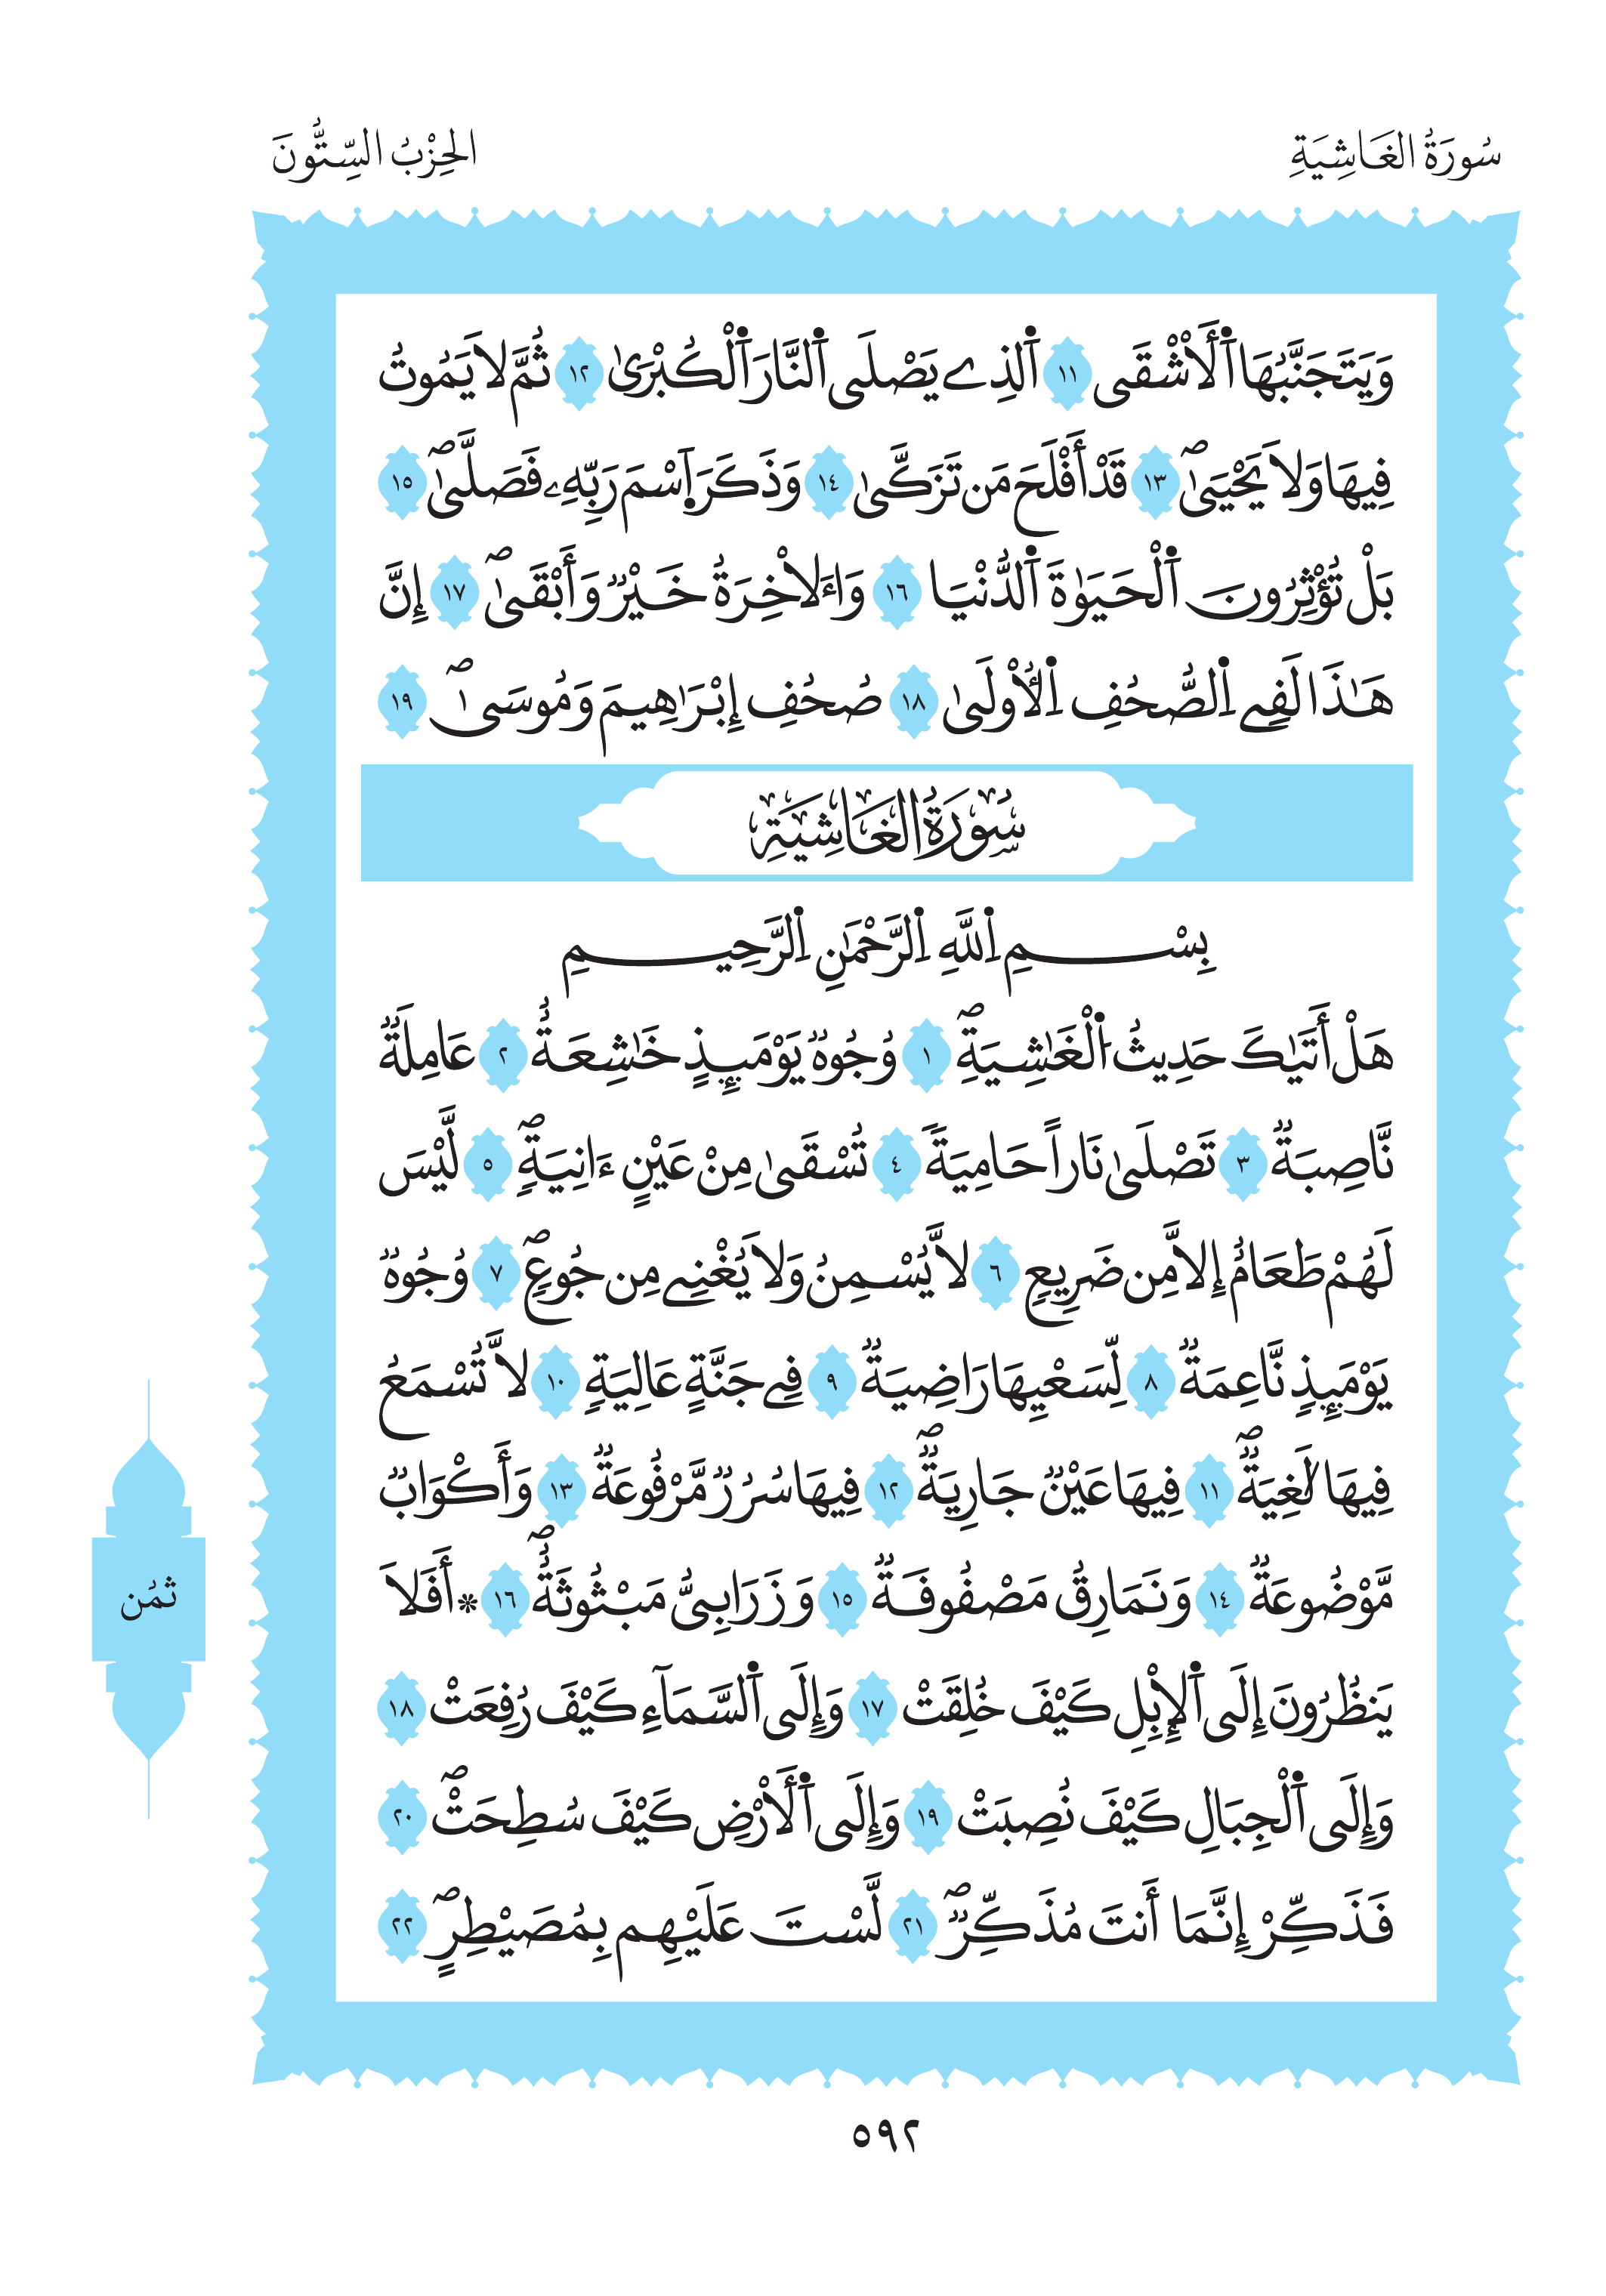 سُورَةُ الغَاشِيَةِ
الحِزْبُ السِّتُّونَ
وَيَتَجَنَّبُهَا اَ۬لَاشْقَي ١١ اَ۬لذِے يَصْلَي اَ۬لنَّارَ اَ۬لْكُبْر۪يٰ ١٢ ثُمَّ لَا يَمُوتُ
فِيهَا وَلَا يَحْييٰۖ ١٣ قَدْ أَفْلَحَ مَن تَزَكّ۪يٰ ١٤ وَذَكَرَ اَ۪سْمَ رَبِّهِۦ فَصَلّ۪يٰۖ ١٥
بَلْ تُؤْثِرُونَ اَ۬لْحَيَوٰةَ اَ۬لدُّنْيَا ١٦ وَاءَلَاخِرَةُ خَيْرٞ وَأَبْقَيٰۖ ١٧ إِنَّ
هَٰذَا لَفِے اِ۬لصُّحُفِ اِ۬لُاولَيٰ ١٨ صُحُفِ إِبْرَٰهِيمَ وَمُوسَيٰۖ ١٩
سُورَةُ الغَاشِيَةِ
بِسْمِ اِ۬للَّهِ اِ۬لرَّحْمَٰنِ اِ۬لرَّحِيمِ
هَلْ أَتَيٰكَ حَدِيثُ اُ۬لْغَٰشِيَةِۖ ١ وُجُوهٞ يَوْمَئِذٍ خَٰشِعَةٌ ٢ عَامِلَةٞ
نَّاصِبَةٞ ٣ تَصْلَيٰ نَاراً حَامِيَةٗ ٤ تُسْقَيٰ مِنْ عَيْنٍ ءَانِيَةٖۖ ٥ لَّيْسَ
لَهُمْ طَعَامٌ إِلَّا مِن ضَرِيعٖ ٦ لَّا يُسْمِنُ وَلَا يُغْنِے مِن جُوعٖۖ ٧ وُجُوهٞ
يَوْمَئِذٖ نَّاعِمَةٞ ٨ لِّسَعْيِهَا رَاضِيَةٞ ٩ فِے جَنَّةٍ عَالِيَةٖ ١٠ لَّا تُسْمَعُ
فِيهَا لَٰغِيَةٞۖ ١١ فِيهَا عَيْنٞ جَارِيَةٞۖ ١٢ فِيهَا سُرُرٞ مَّرْفُوعَةٞ ١٣ وَأَكْوَابٞ
مَّوْضُوعَةٞ ١٤ وَنَمَارِقُ مَصْفُوفَةٞ ١٥ وَزَرَابِيُّ مَبْثُوثَةٌۖ ١٦ * أَفَلَا
يَنظُرُونَ إِلَي اَ۬لِابِلِ كَيْفَ خُلِقَتْ ١٧ وَإِلَي اَ۬لسَّمَآءِ كَيْفَ رُفِعَتْ ١٨
وَإِلَي اَ۬لْجِبَالِ كَيْفَ نُصِبَتْ ١٩ وَإِلَي اَ۬لَارْضِ كَيْفَ سُطِحَتْۖ ٢٠
فَذَكِّرْ إِنَّمَا أَنتَ مُذَكِّرٞۖ ٢١ لَّسْتَ عَلَيْهِم بِمُصَيْطِرٍۖ ٢٢
ثمُن
٥٩٢